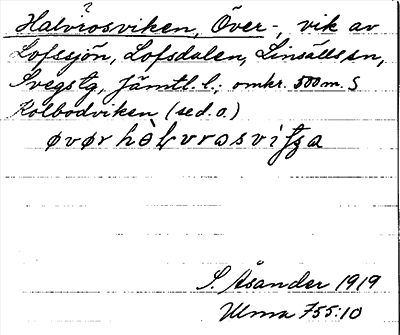 ?
Halvrosviken, Över-, vik av
Lofssjön, Lofsdalen, Linsälls sn,
Svegs tg, Jämtl. l.; omkr. 500 m. S
Kolbodviken (sed. o.)
S. Åsander 1919
Ulma 755:10